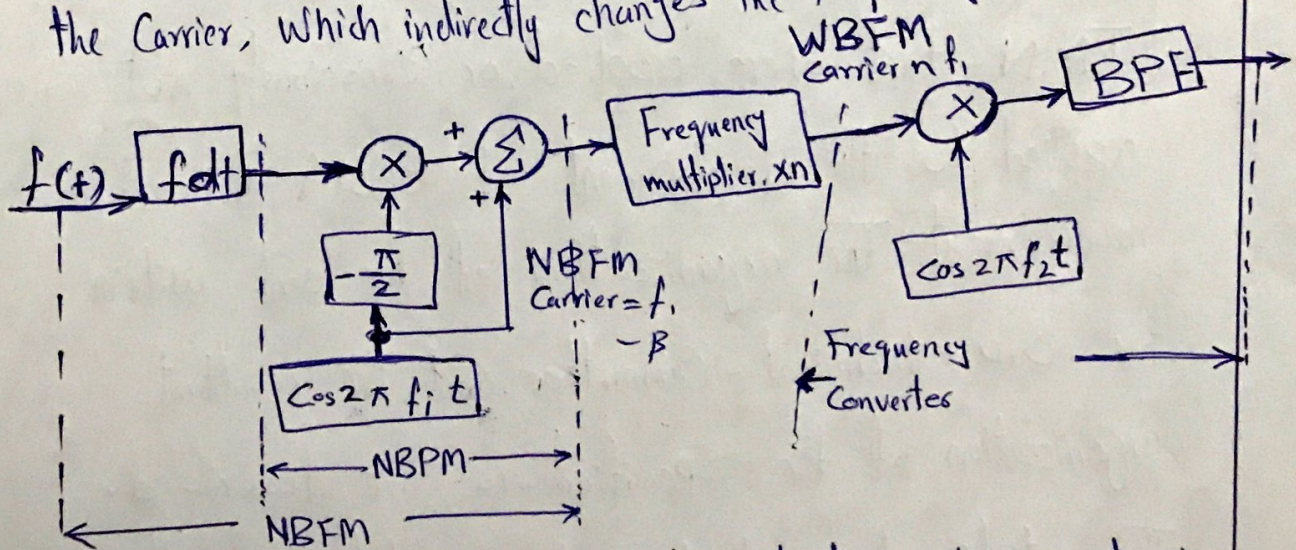 the Carrier, Which indirectly changes the
WBFM
Carrier n f₁
BPF
×
Frequency
multiplier, xn
f(t)
∫dt
×
+
Σ
+
-π/2
NBFM
Carrier = f₁
- β
Cos 2π f₂ t
Cos 2π f₁ t
Frequency
Converter
NBPM
NBFM